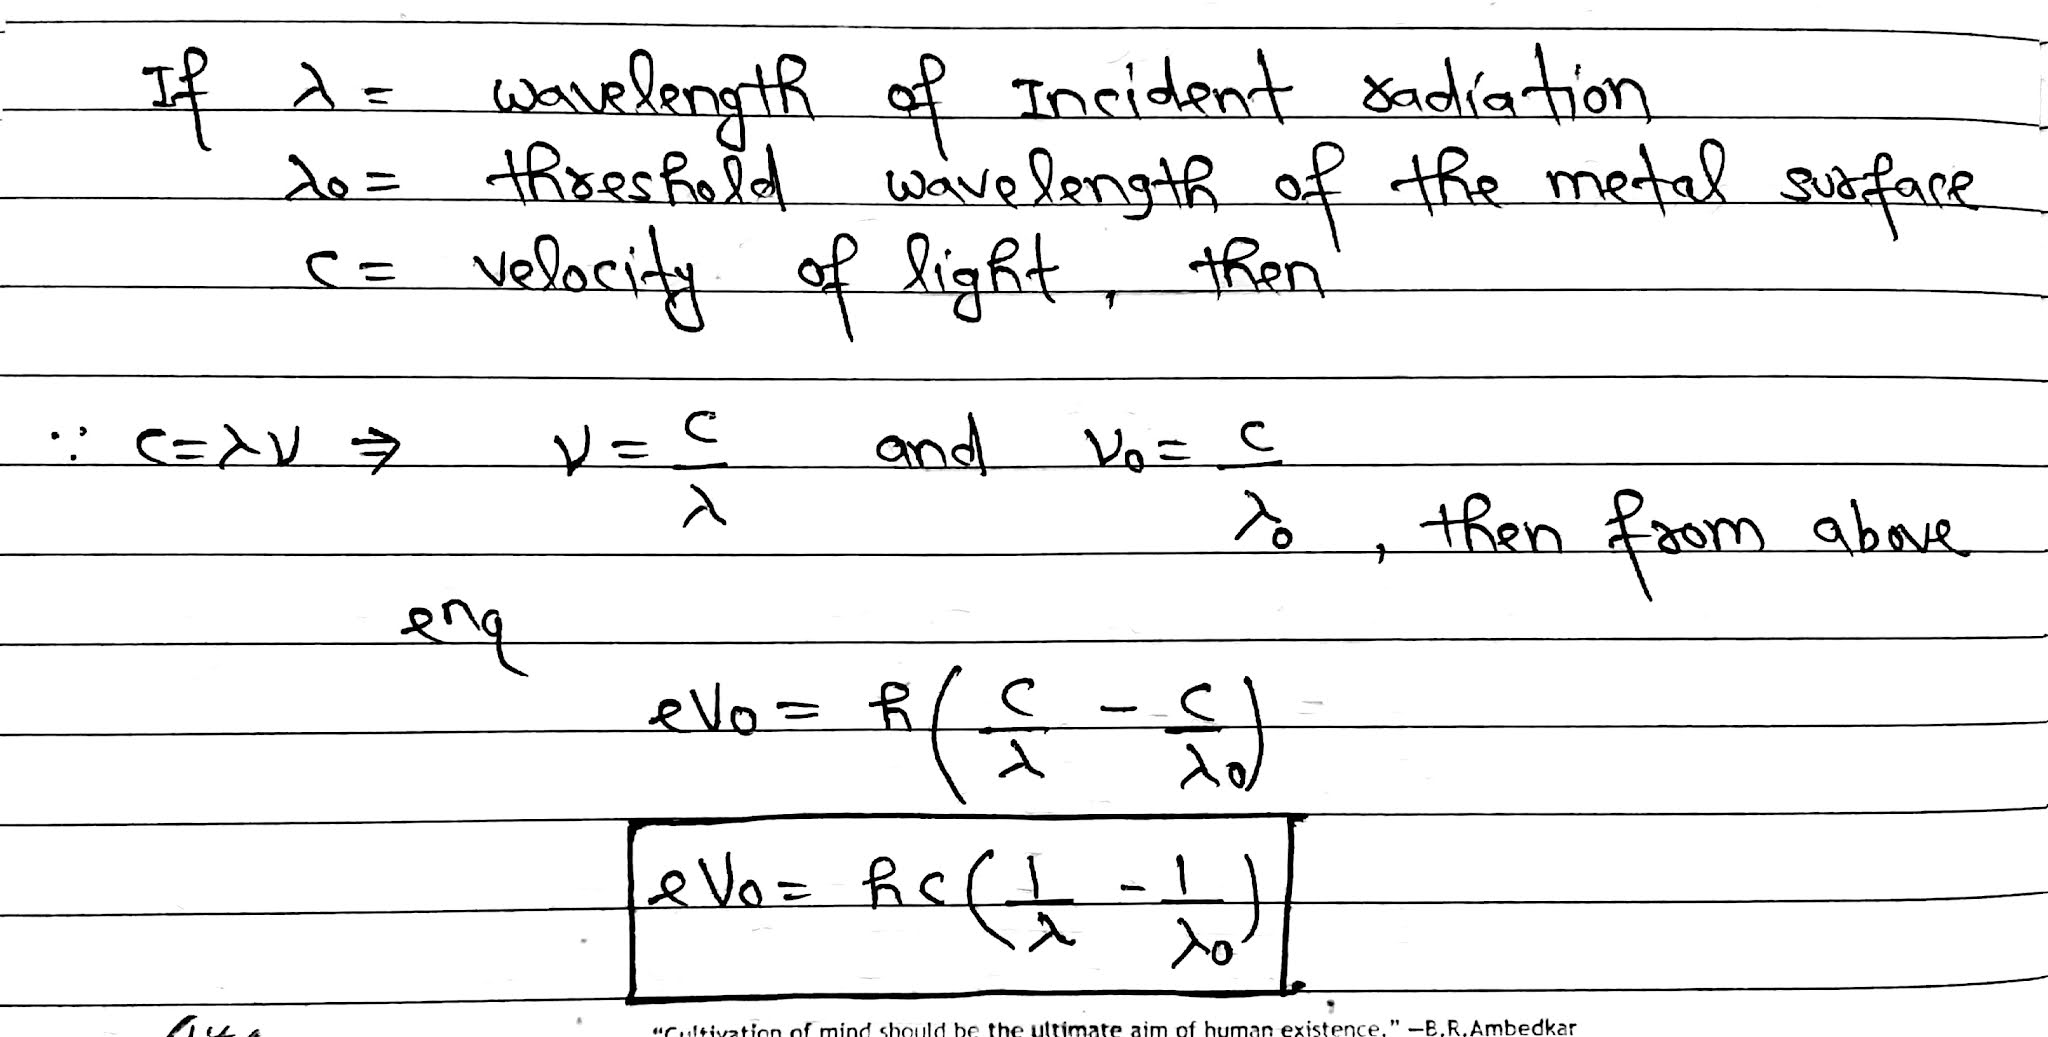 If λ = wavelength of Incident radiation
λ0 = threshold wavelength of the metal surface
c = velocity of light, then
∵ c=λν ⇒ ν = c/λ and ν0 = c/λ0, then from above
enq
eV0 = h(c/λ - c/λ0)
eV0 = hc(1/λ - 1/λ0)
"Cultivation of mind should be the ultimate aim of human existence." —B.R.Ambedkar